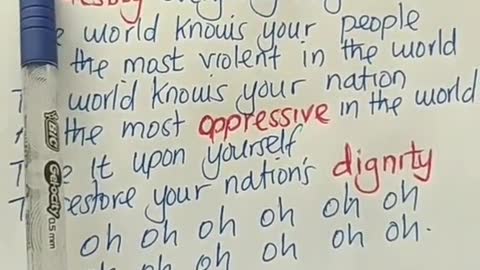 world knows your people
the most violent in the world
world knows your nation
the most oppressive in the world
it upon yourself
restore your nation's dignity
oh oh oh oh oh oh
oh oh oh oh oh
BIC Gelocity 0.5 mm